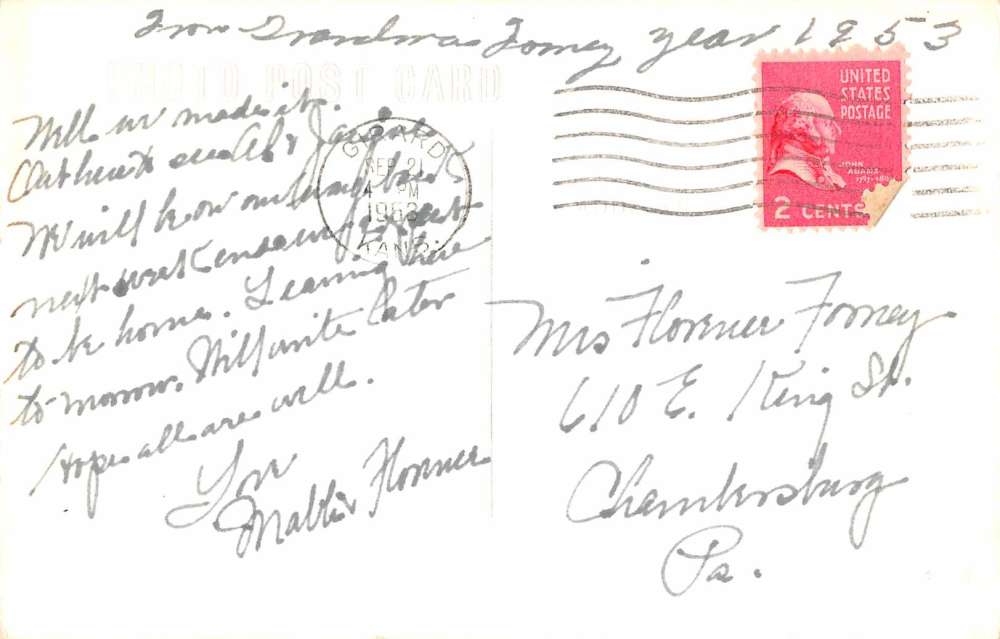 From Grandma Forney year 1953
PHOTO POST CARD
Well we made it.
Out here to see Al &
We will know
next week
to be home. Leaving here
tomorrow. Will write later
Hope all are well.
Love
Florence
GIRARD
SEP 21
4 PM
1953
KANS.
UNITED
STATES
POSTAGE
JOHN
ADAMS
1797-1801
2 CENTS
Mrs Florence Forney
610 E. King St.
Chambersburg
Pa.